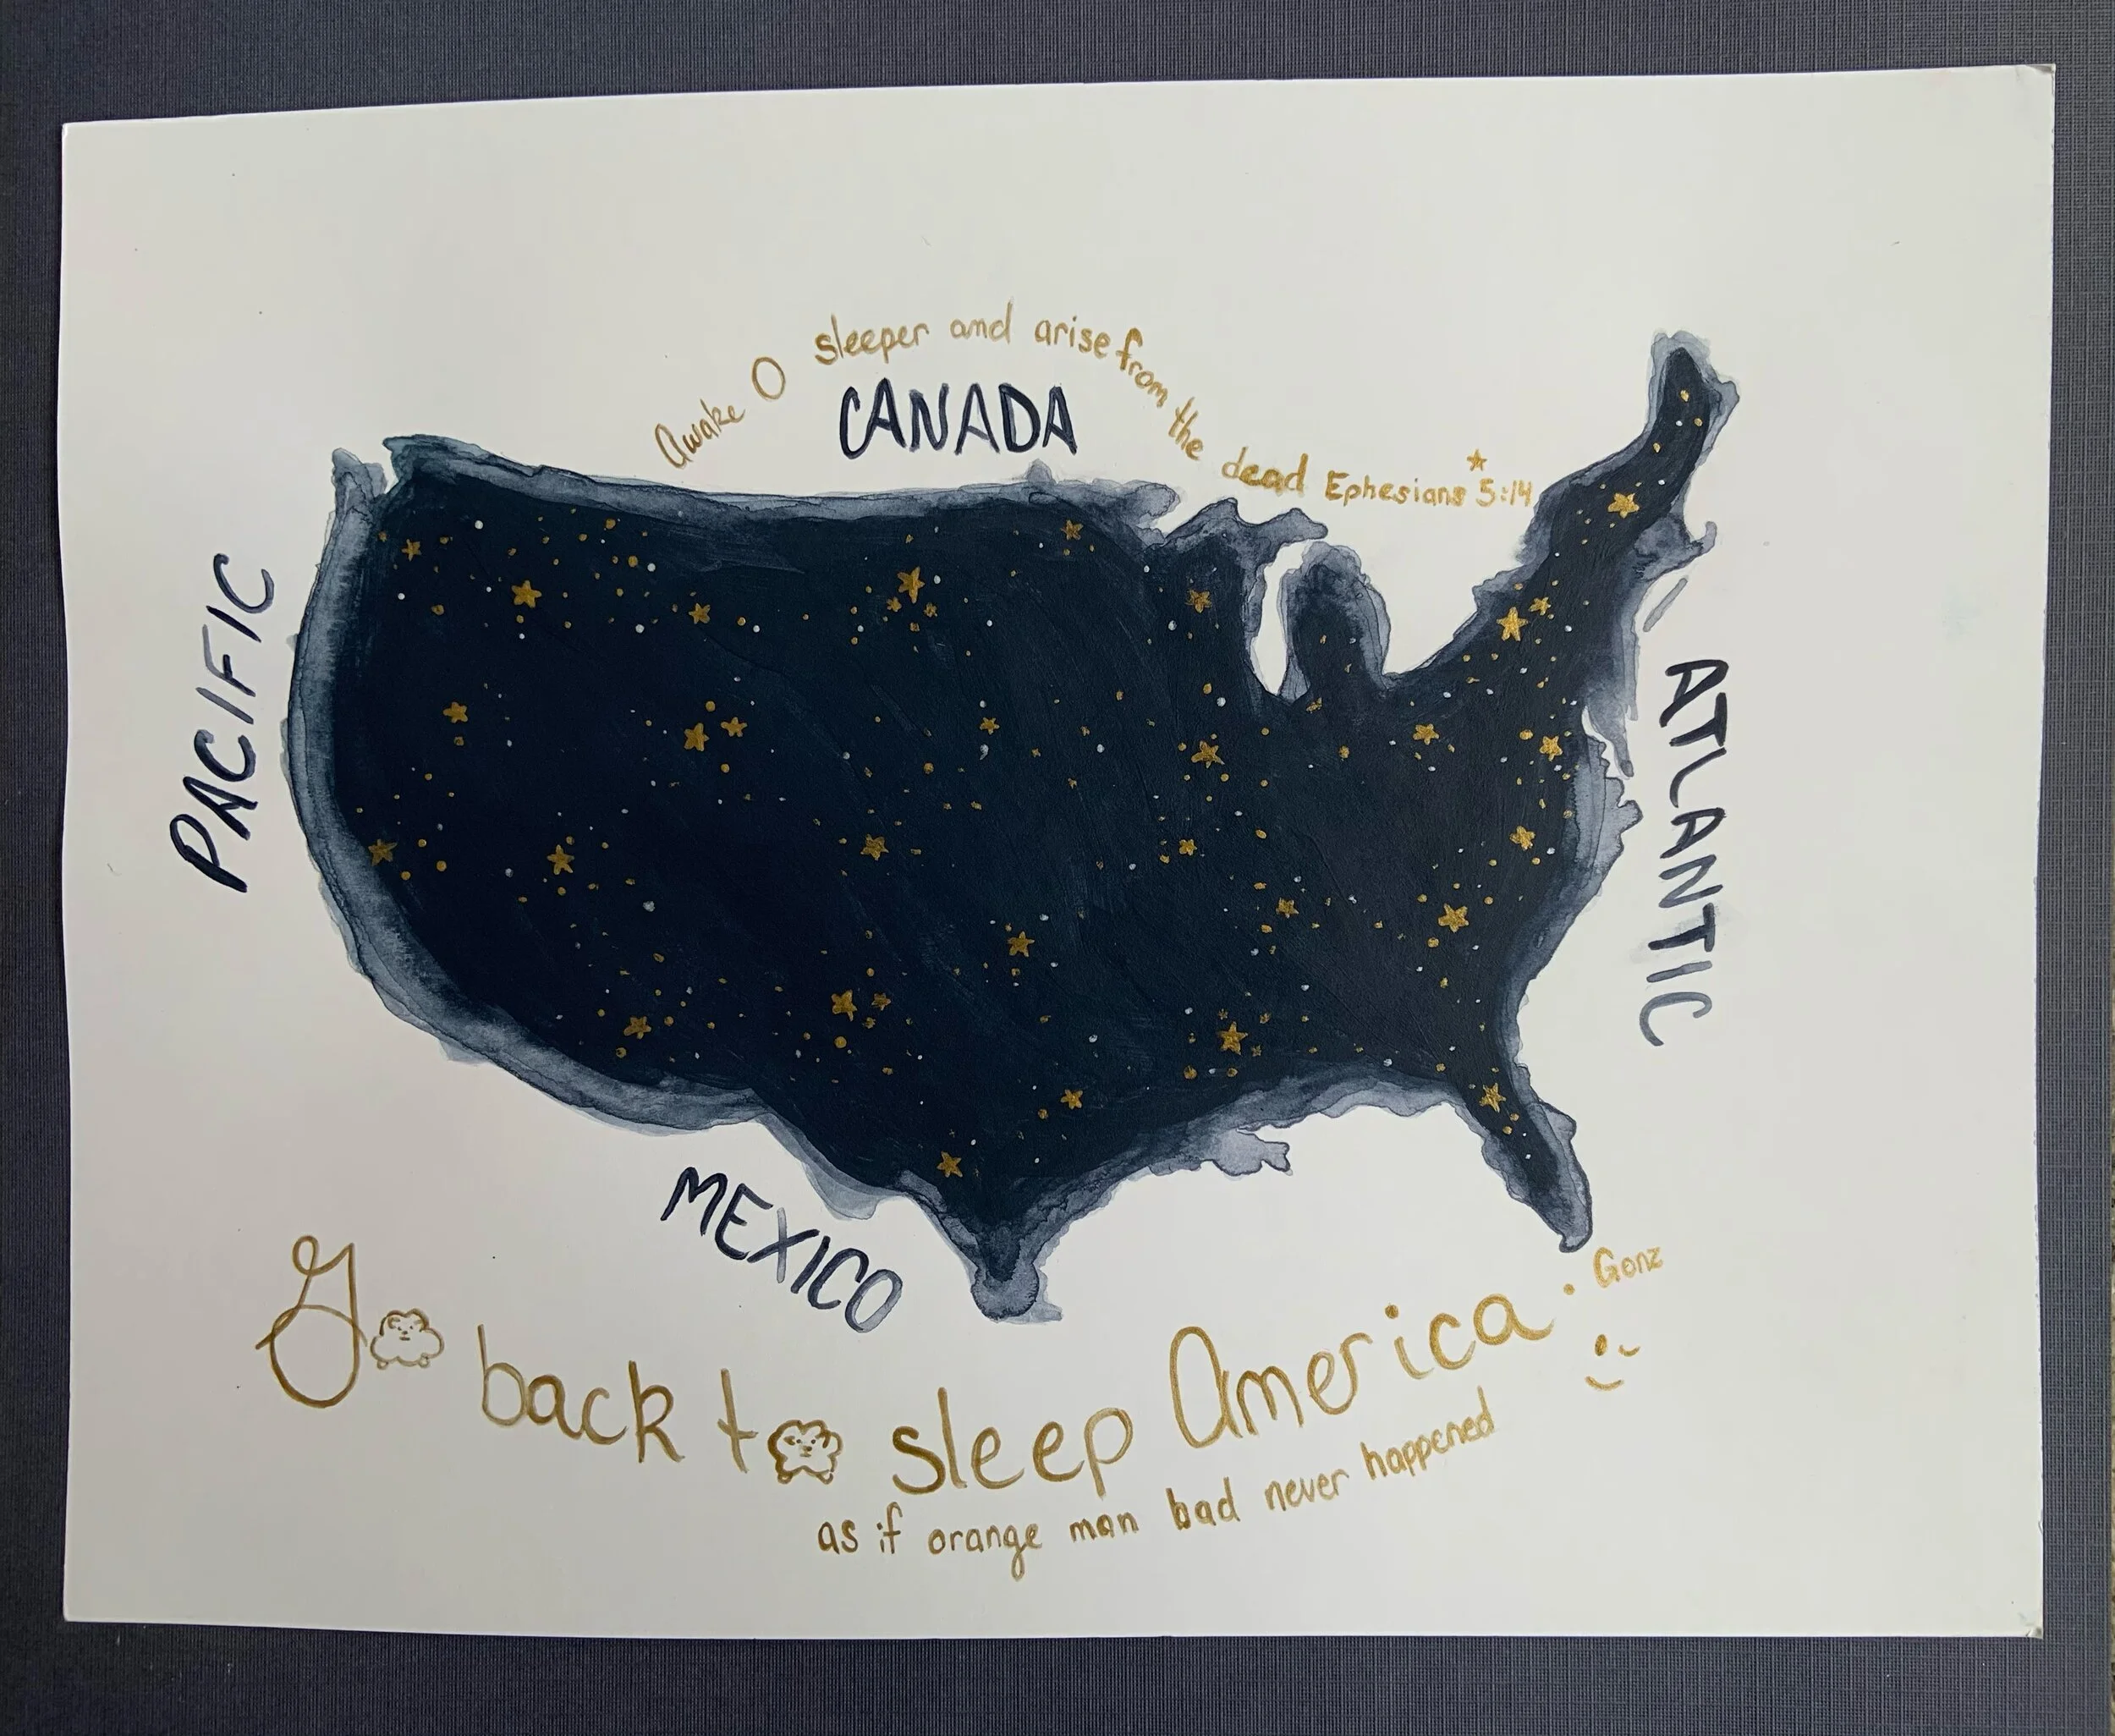 Awake O sleeper and arise from the dead Ephesians 5:14
CANADA
PACIFIC
ATLANTIC
MEXICO
Go back to sleep America.
Gonz
as if orange man bad never happened